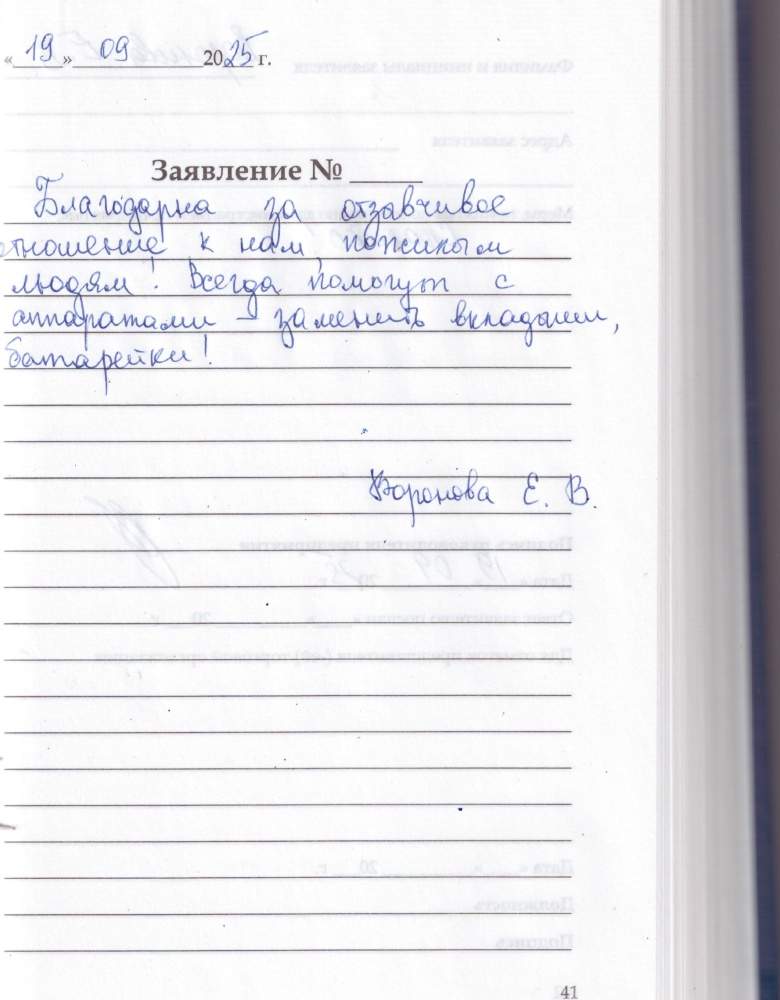 «19» 09 2025 г.
Заявление № ____
Благодарна за отзавчивое
отношение к нам, пожилым
людям! Всегда помогут с
аппаратами – заменить вкладыши,
батарейки!
Воронова Е. В.
41